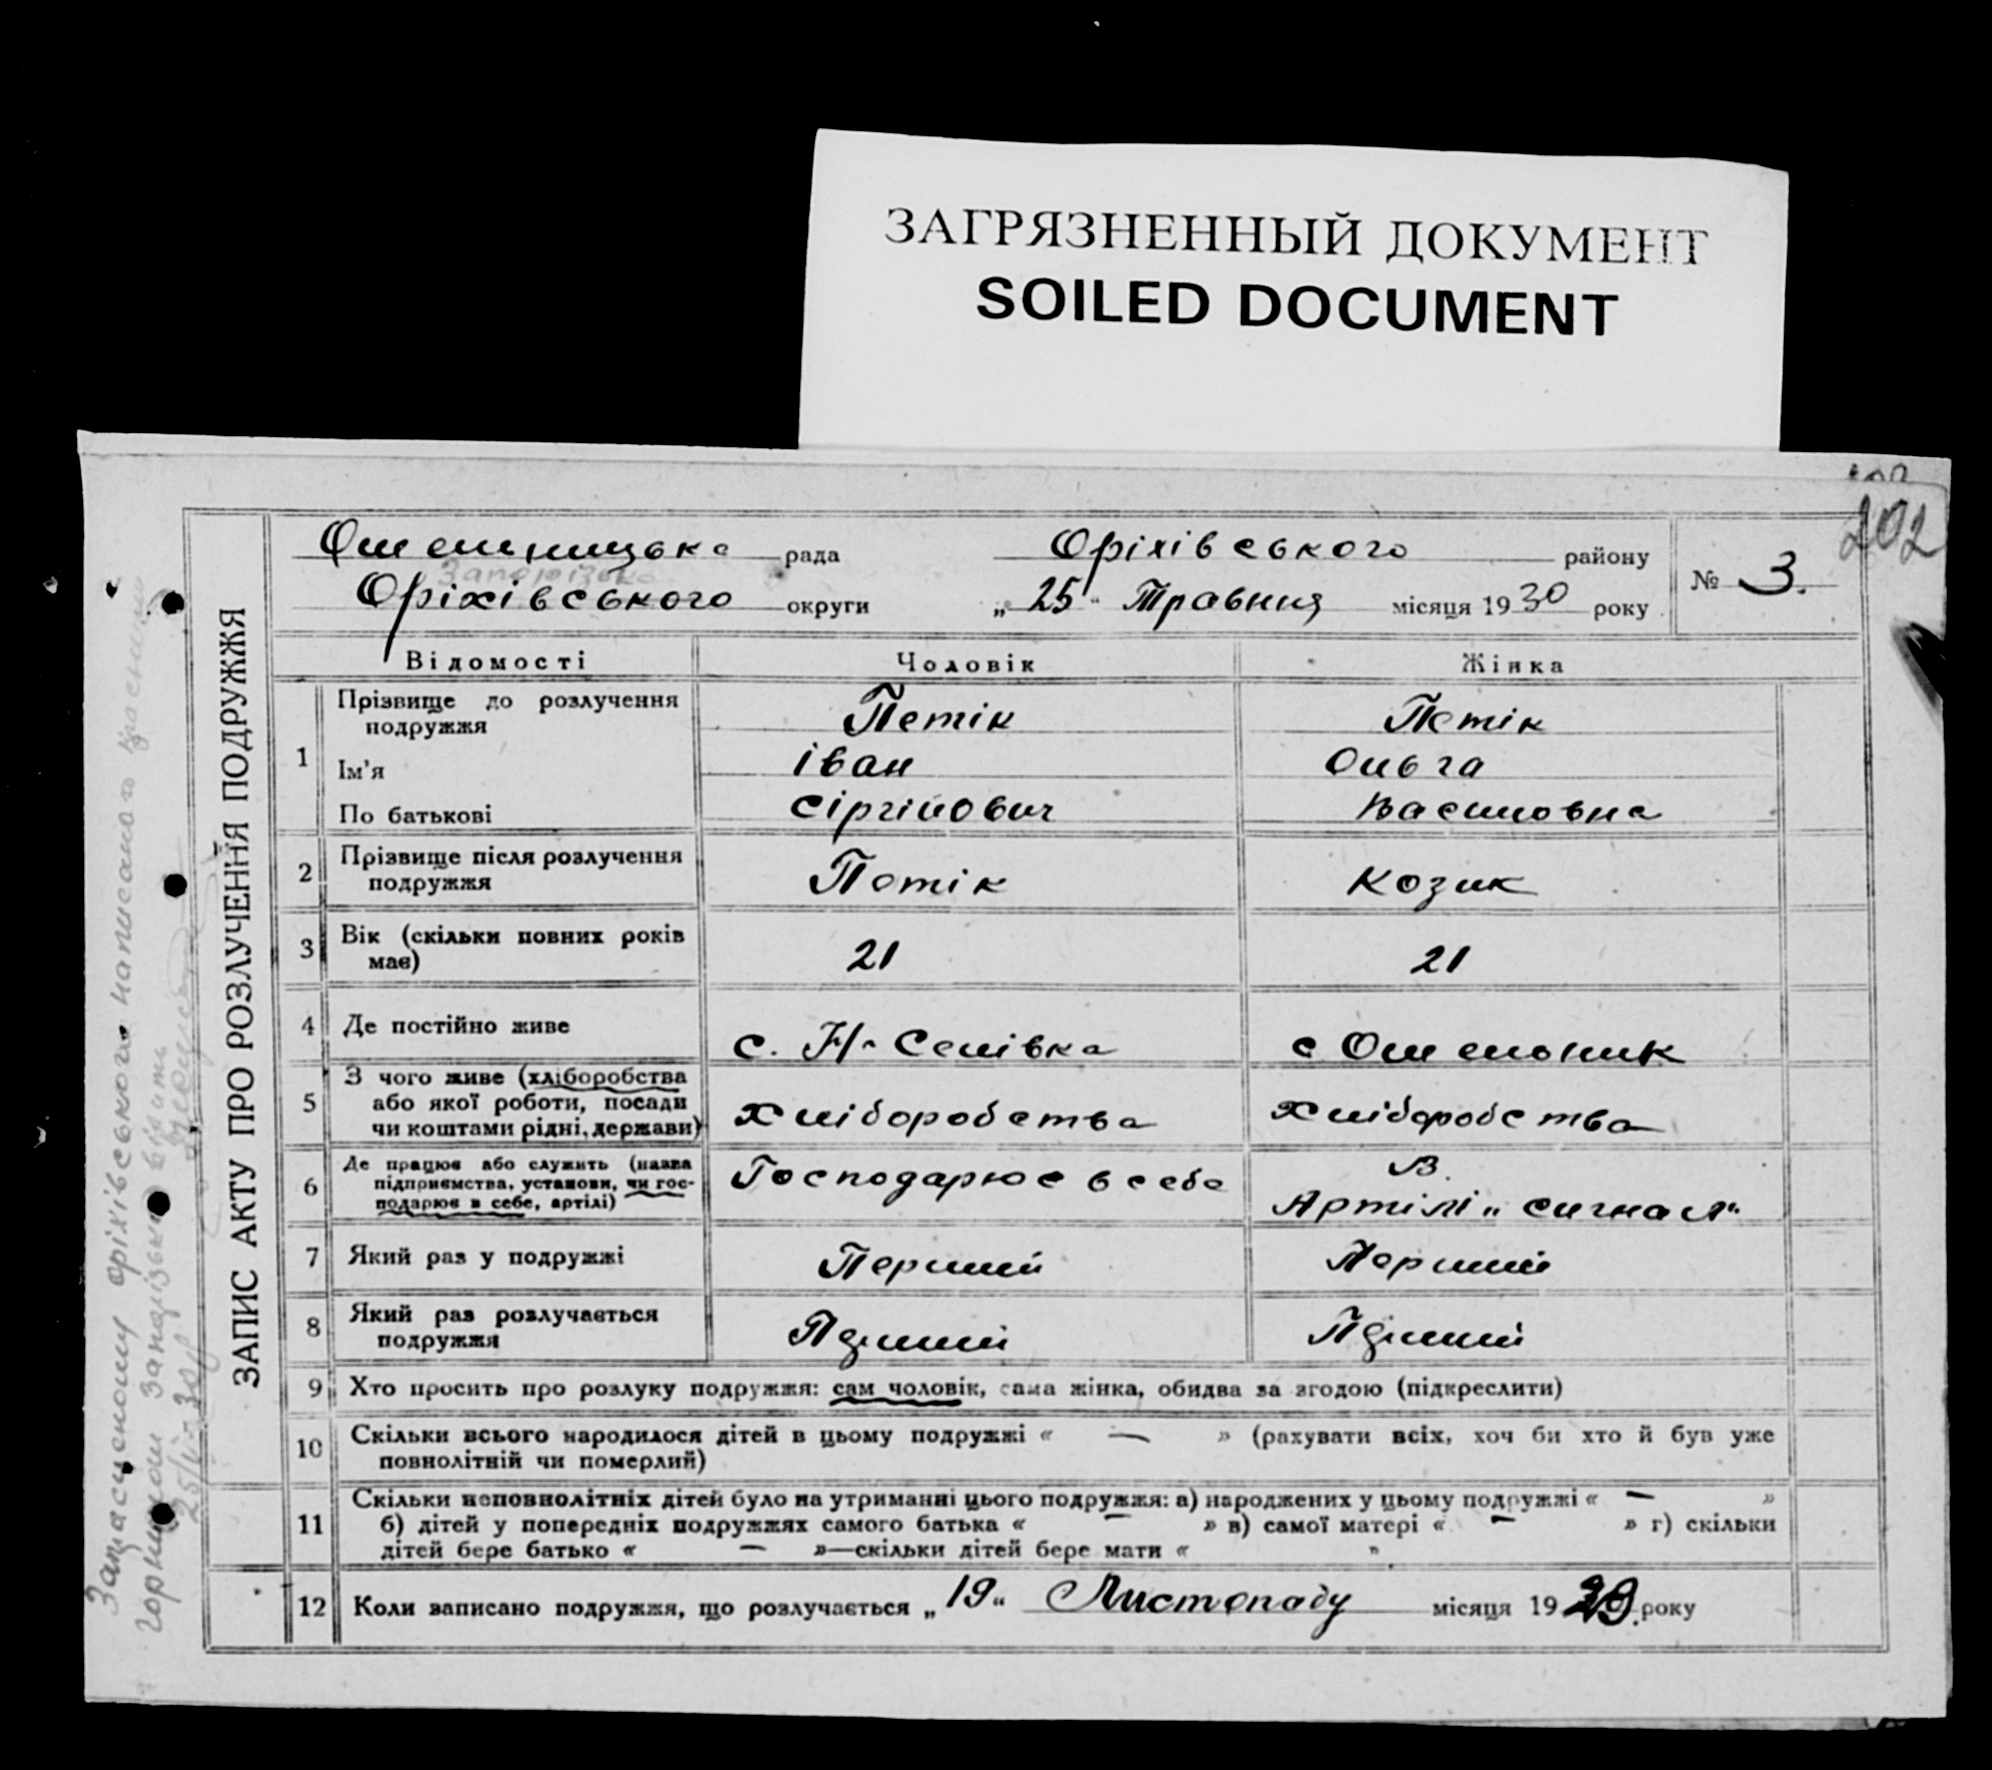 ЗАГРЯЗНЕННЫЙ ДОКУМЕНТ
SOILED DOCUMENT
202
рада Оріхівського району
Запорізька
Оріхівського округи „ 25 " Травня місяця 1930 року
№ 3.
ЗАПИС АКТУ ПРО РОЗЛУЧЕННЯ ПОДРУЖЖЯ
Відомості Чоловік Жінка
1 Прізвище до розлучення подружжя Петік Петік
Ім'я Іван Ольга
По батькові Сіргійович Василовна
2 Прізвище після розлучення подружжя Петік Козик
3 Вік (скільки повних років має) 21 21
4 Де постійно живе с. с
5 З чого живе (хліборобства або якої роботи, посади чи коштами рідні, держави) Хліборобства Хліборобства
6 Де працює або служить (назва підприємства, установи, чи господарює в себе, артілі) Господарює в себе В Артілі „ сигнал"
7 Який раз у подружжі Перший Перший
8 Який раз розлучається подружжя Перший Перший
9 Хто просить про розлуку подружжя: сам чоловік, сама жінка, обидва за згодою (підкреслити)
10 Скільки всього народилося дітей в цьому подружжі « — » (рахувати всіх, хоч би хто й був уже
повнолітній чи померлий)
11 Скільки неповнолітніх дітей було на утриманні цього подружжя: а) народжених у цьому подружжі « — »
б) дітей у попередніх подружжях самого батька « — » в) самої матері « - » г) скільки
дітей бере батько « — »—скільки дітей бере мати « »
12 Коли записано подружжя, що розлучається „ 19 " Листопаду місяця 1929. року
Закресленому оріхівського написаного
чорнилом вірить